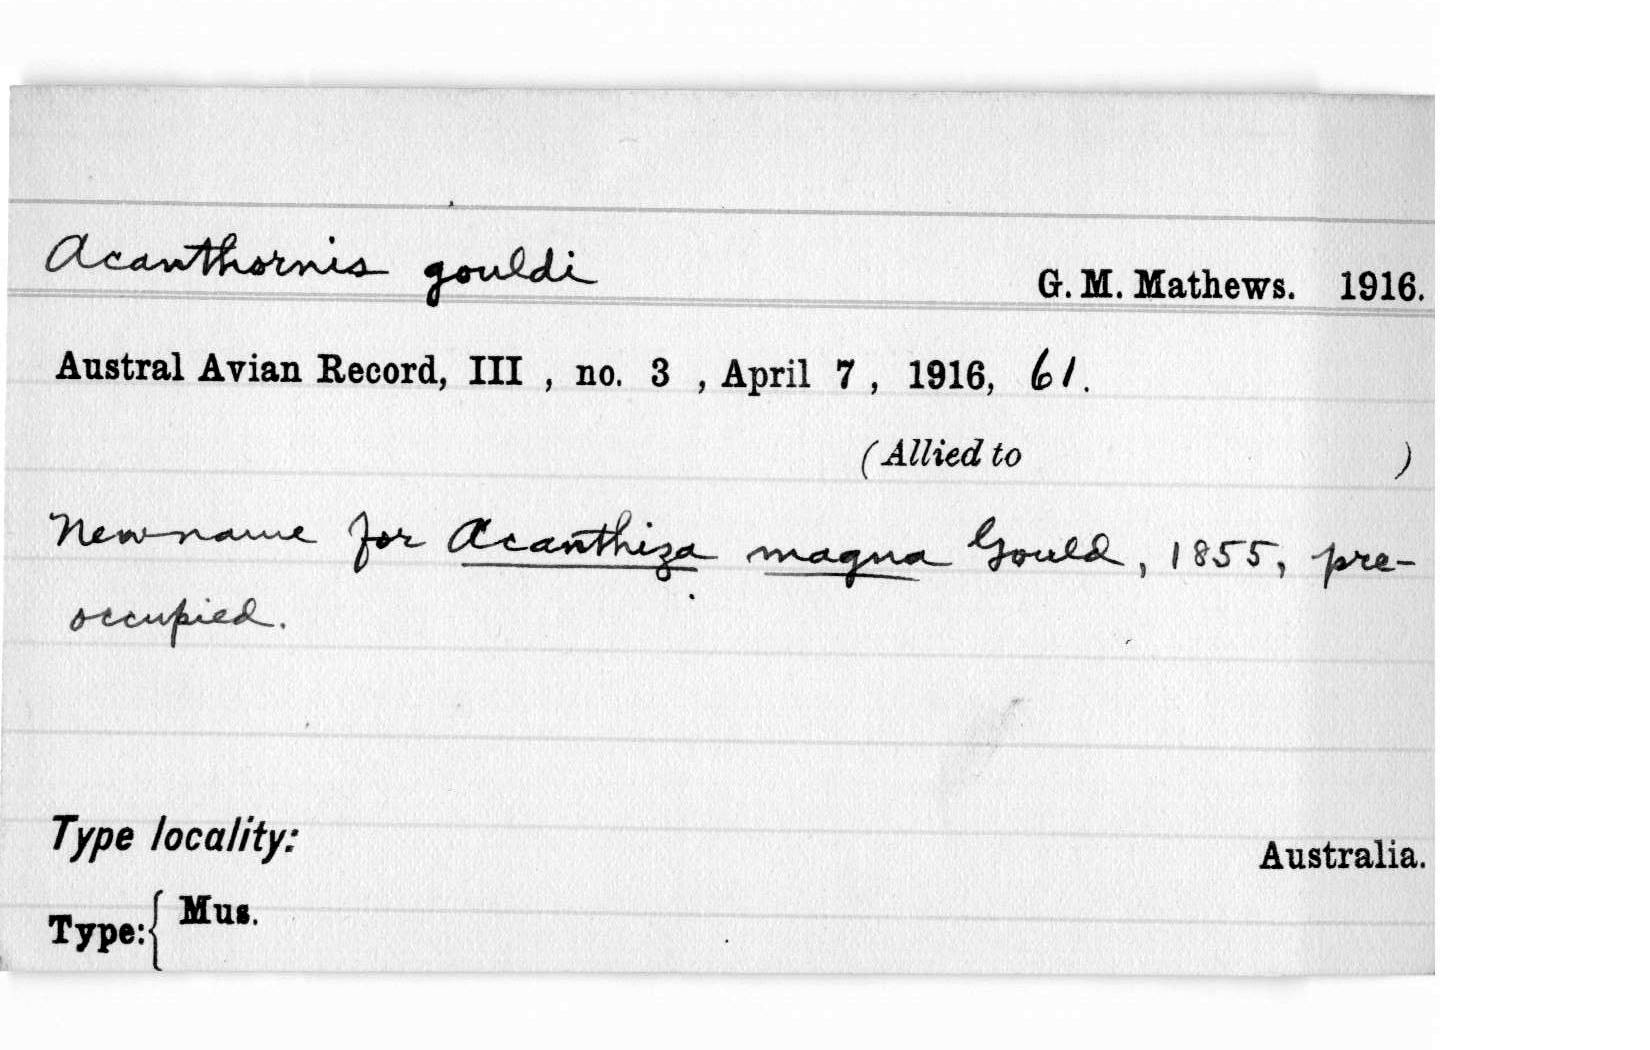 Acanthornis gouldi G. M. Mathews. 1916.
Austral Avian Record, III , no. 3 , April 7 , 1916, 61.
(Allied to )
New name for Acanthiza magna Gould, 1855, pre-
occupied.
Type locality: Australia.
Type: { Mus.